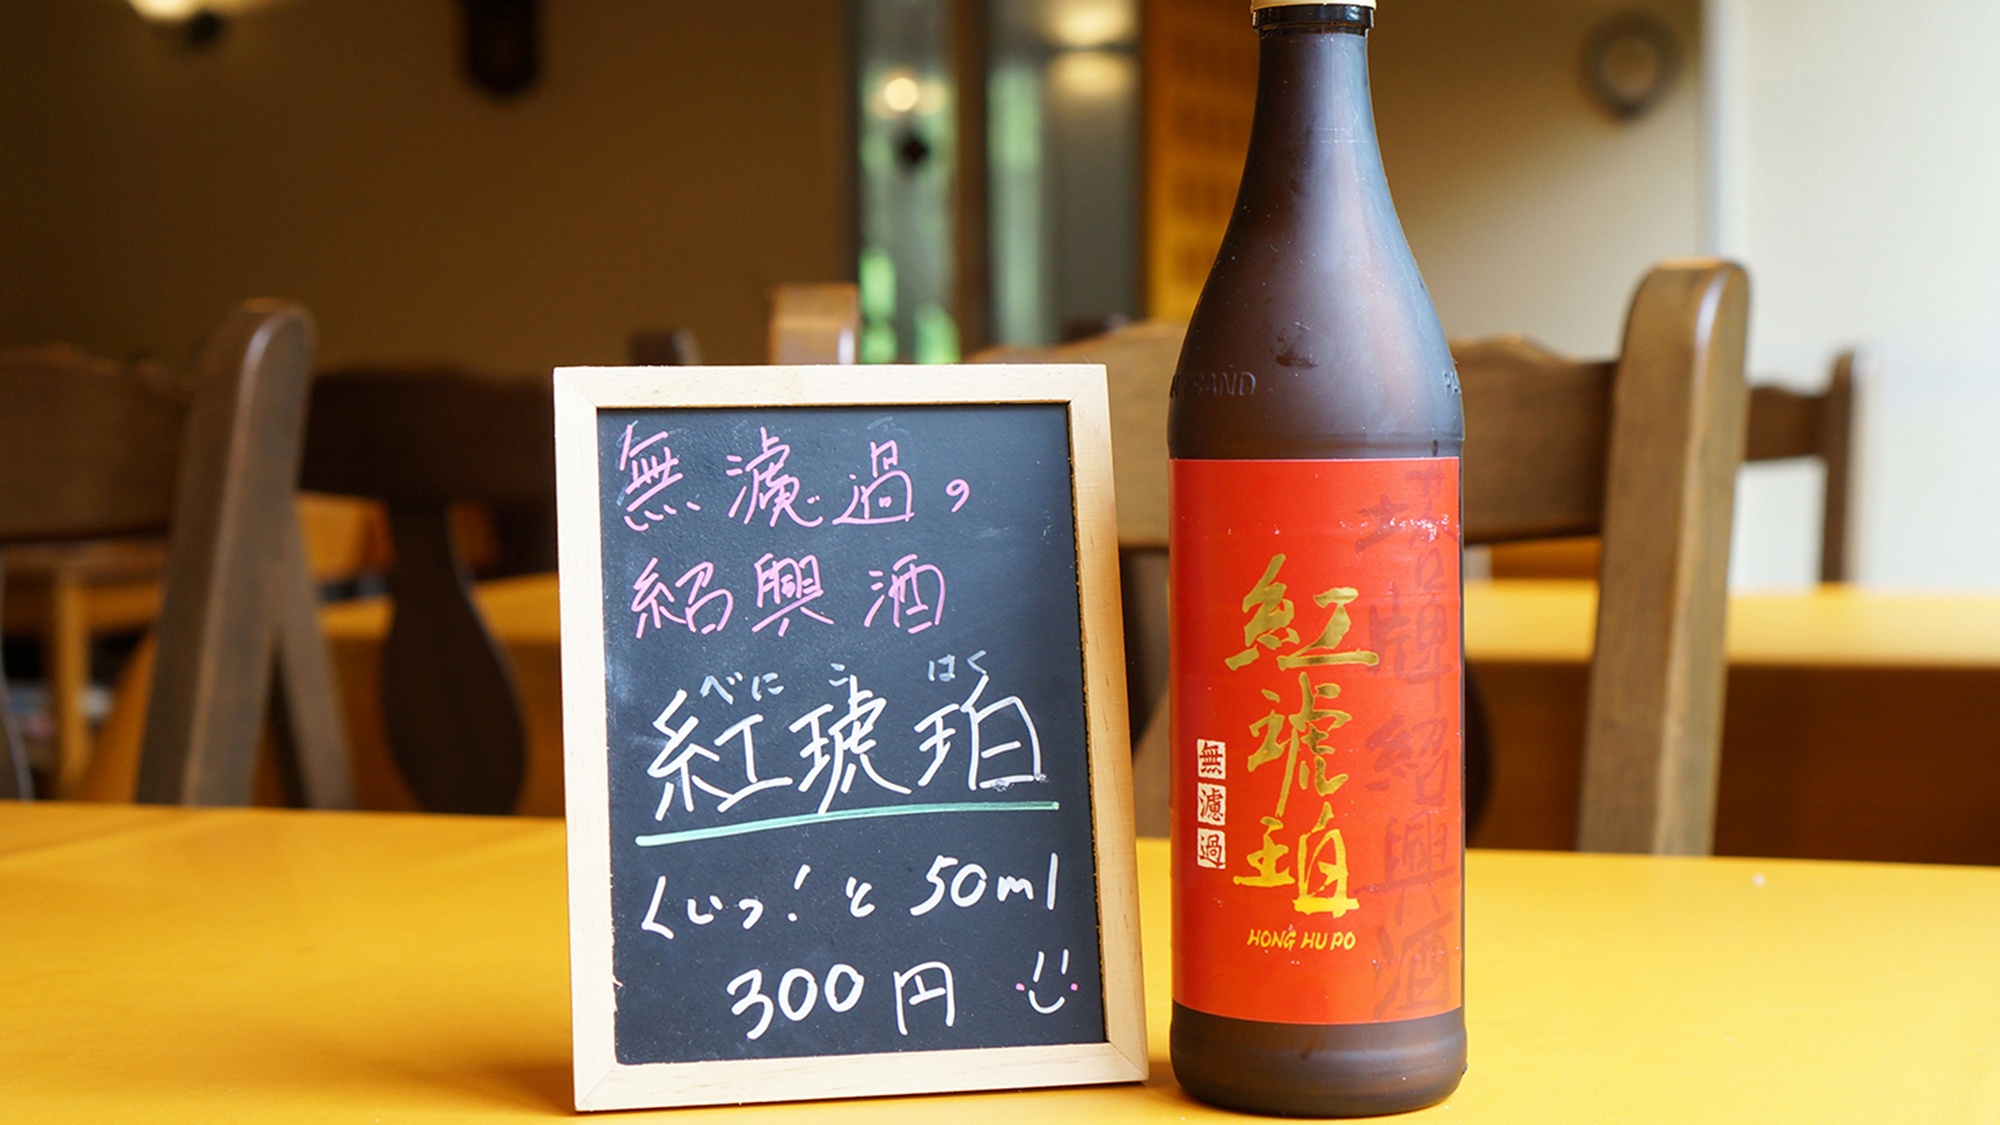 無濾過の
紹興酒
べに こ はく
紅琥珀
くいっ!と 50ml
300円
紅琥珀
無濾過
HONG HU PO
牌紹興酒